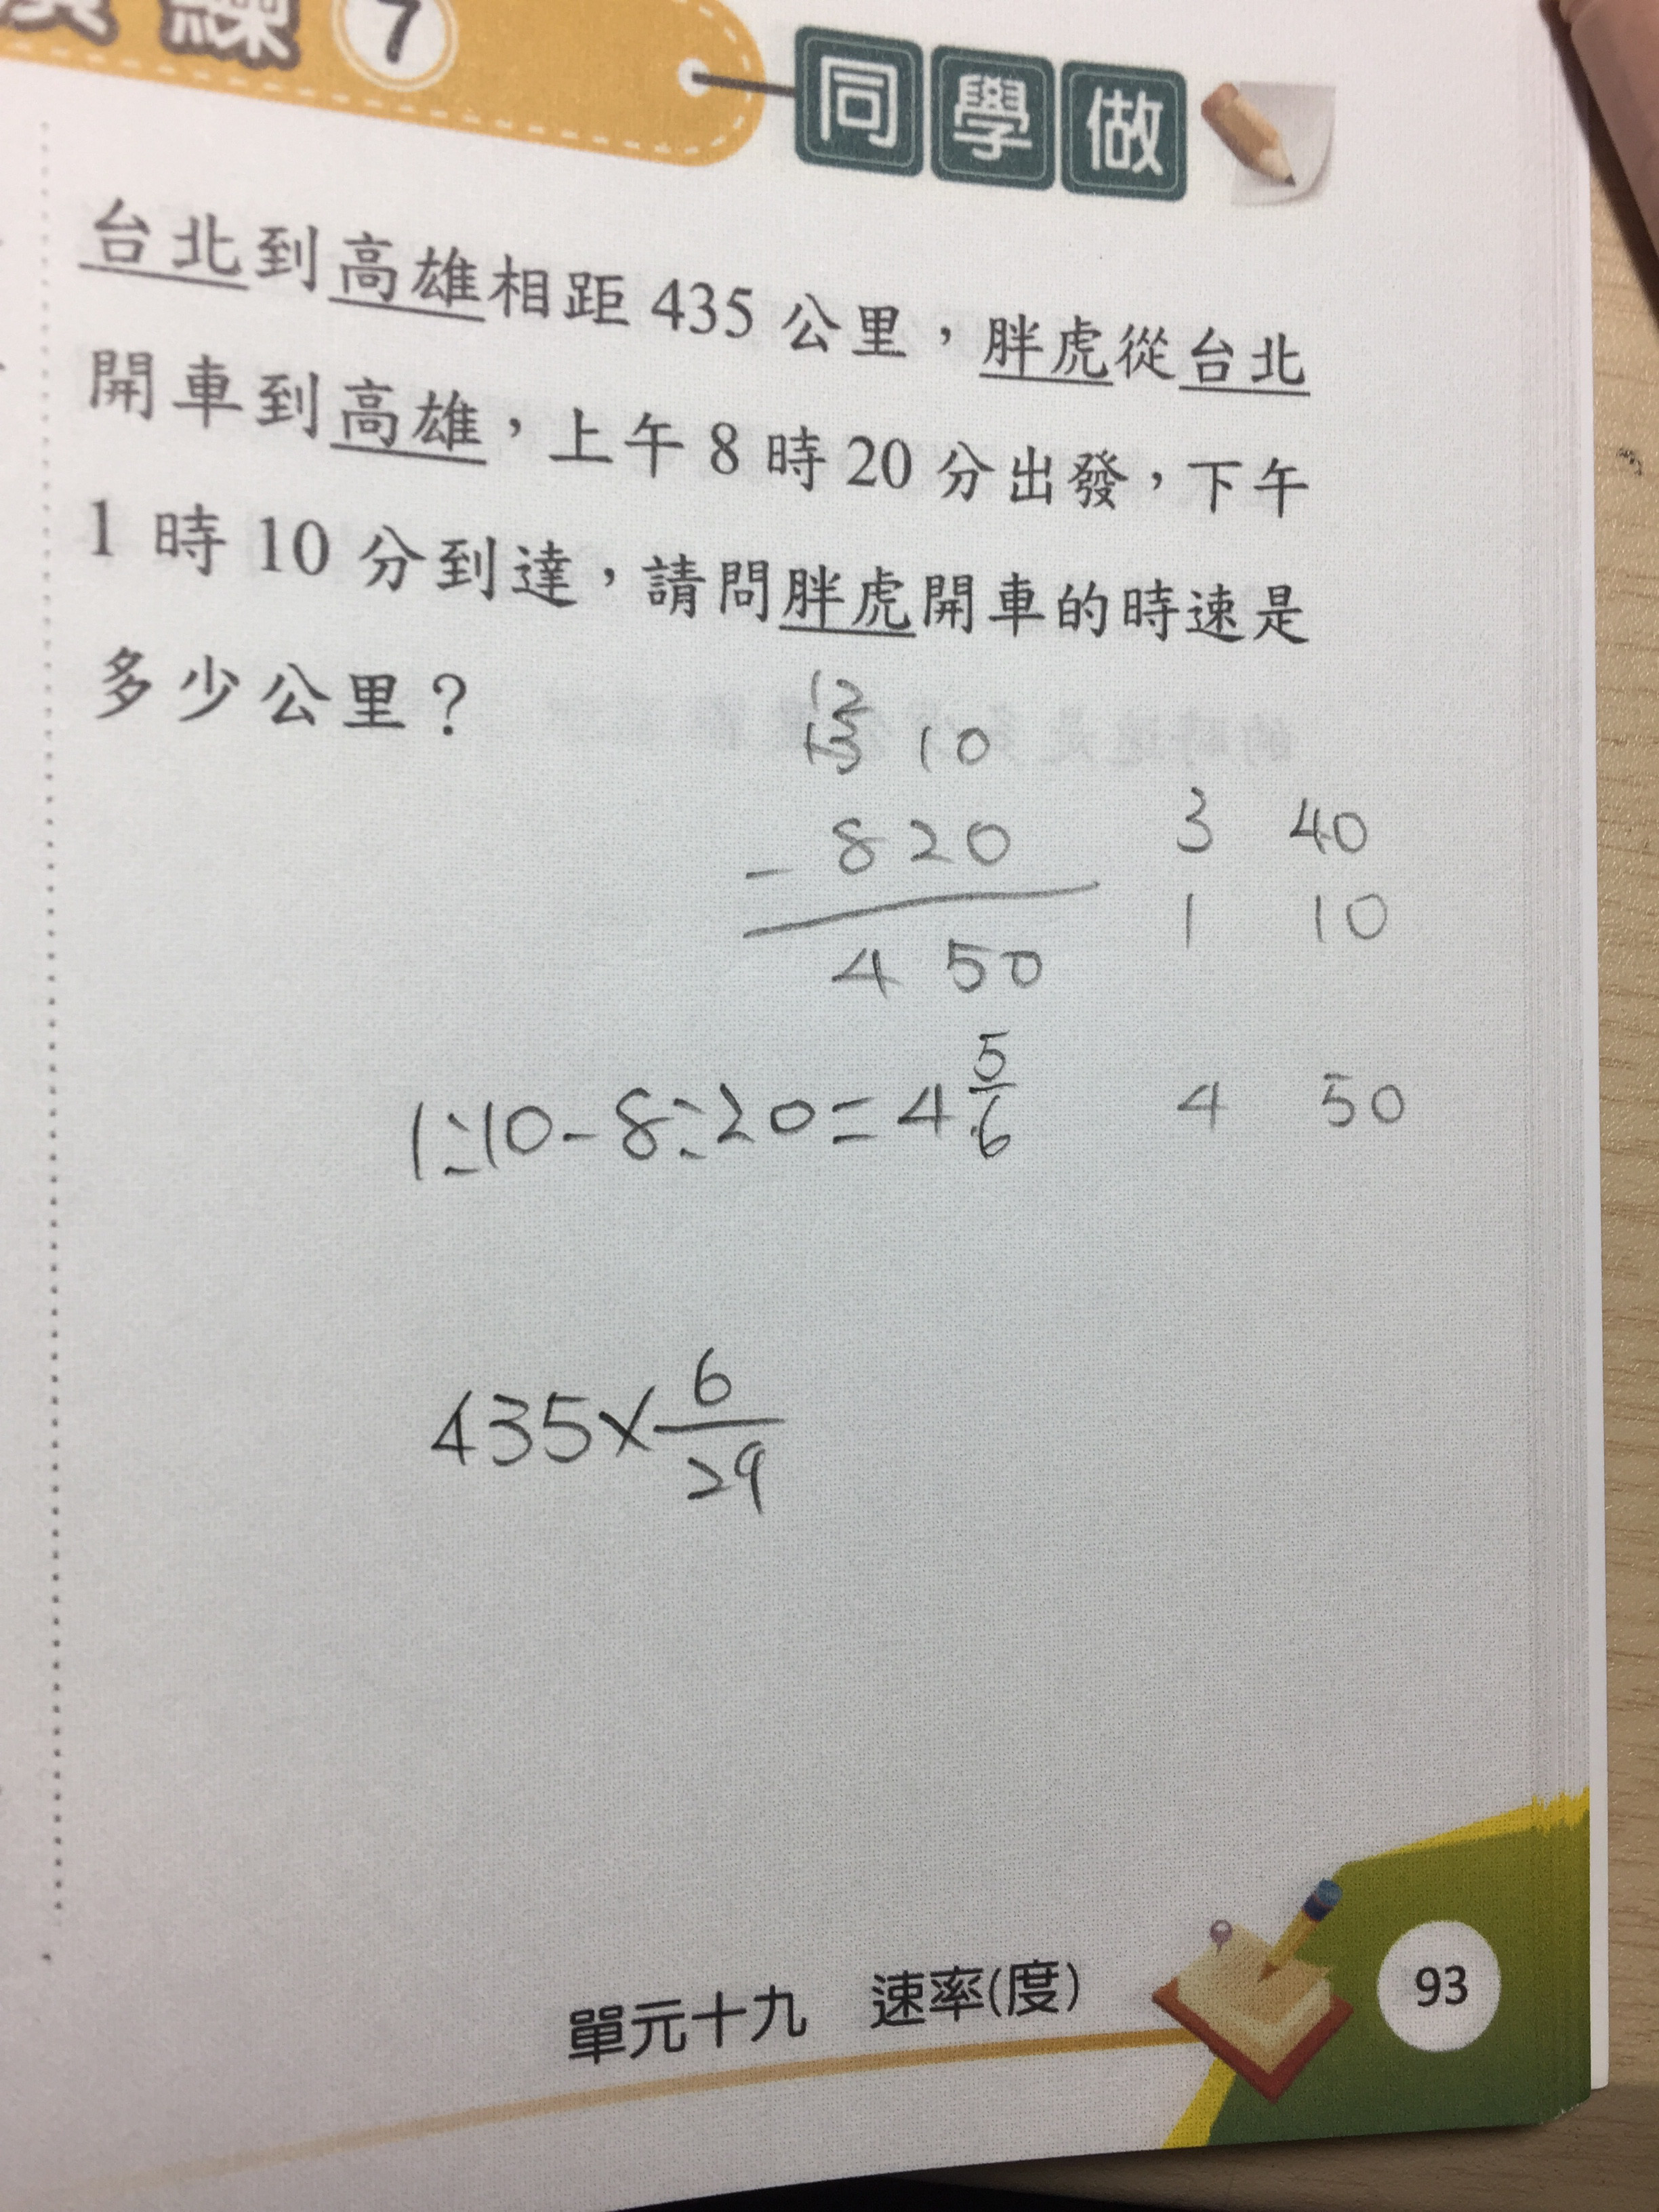 練 7 同學做
台北到高雄相距 435 公里，胖虎從台北
開車到高雄，上午 8 時 20 分出發，下午
1 時 10 分到達，請問胖虎開車的時速是
多少公里？
12
13 10
- 8 20
4 50
3 40
1 10
4 50
1:10-8:20=4 5/6
435×6/29
單元十九 速率(度)
93